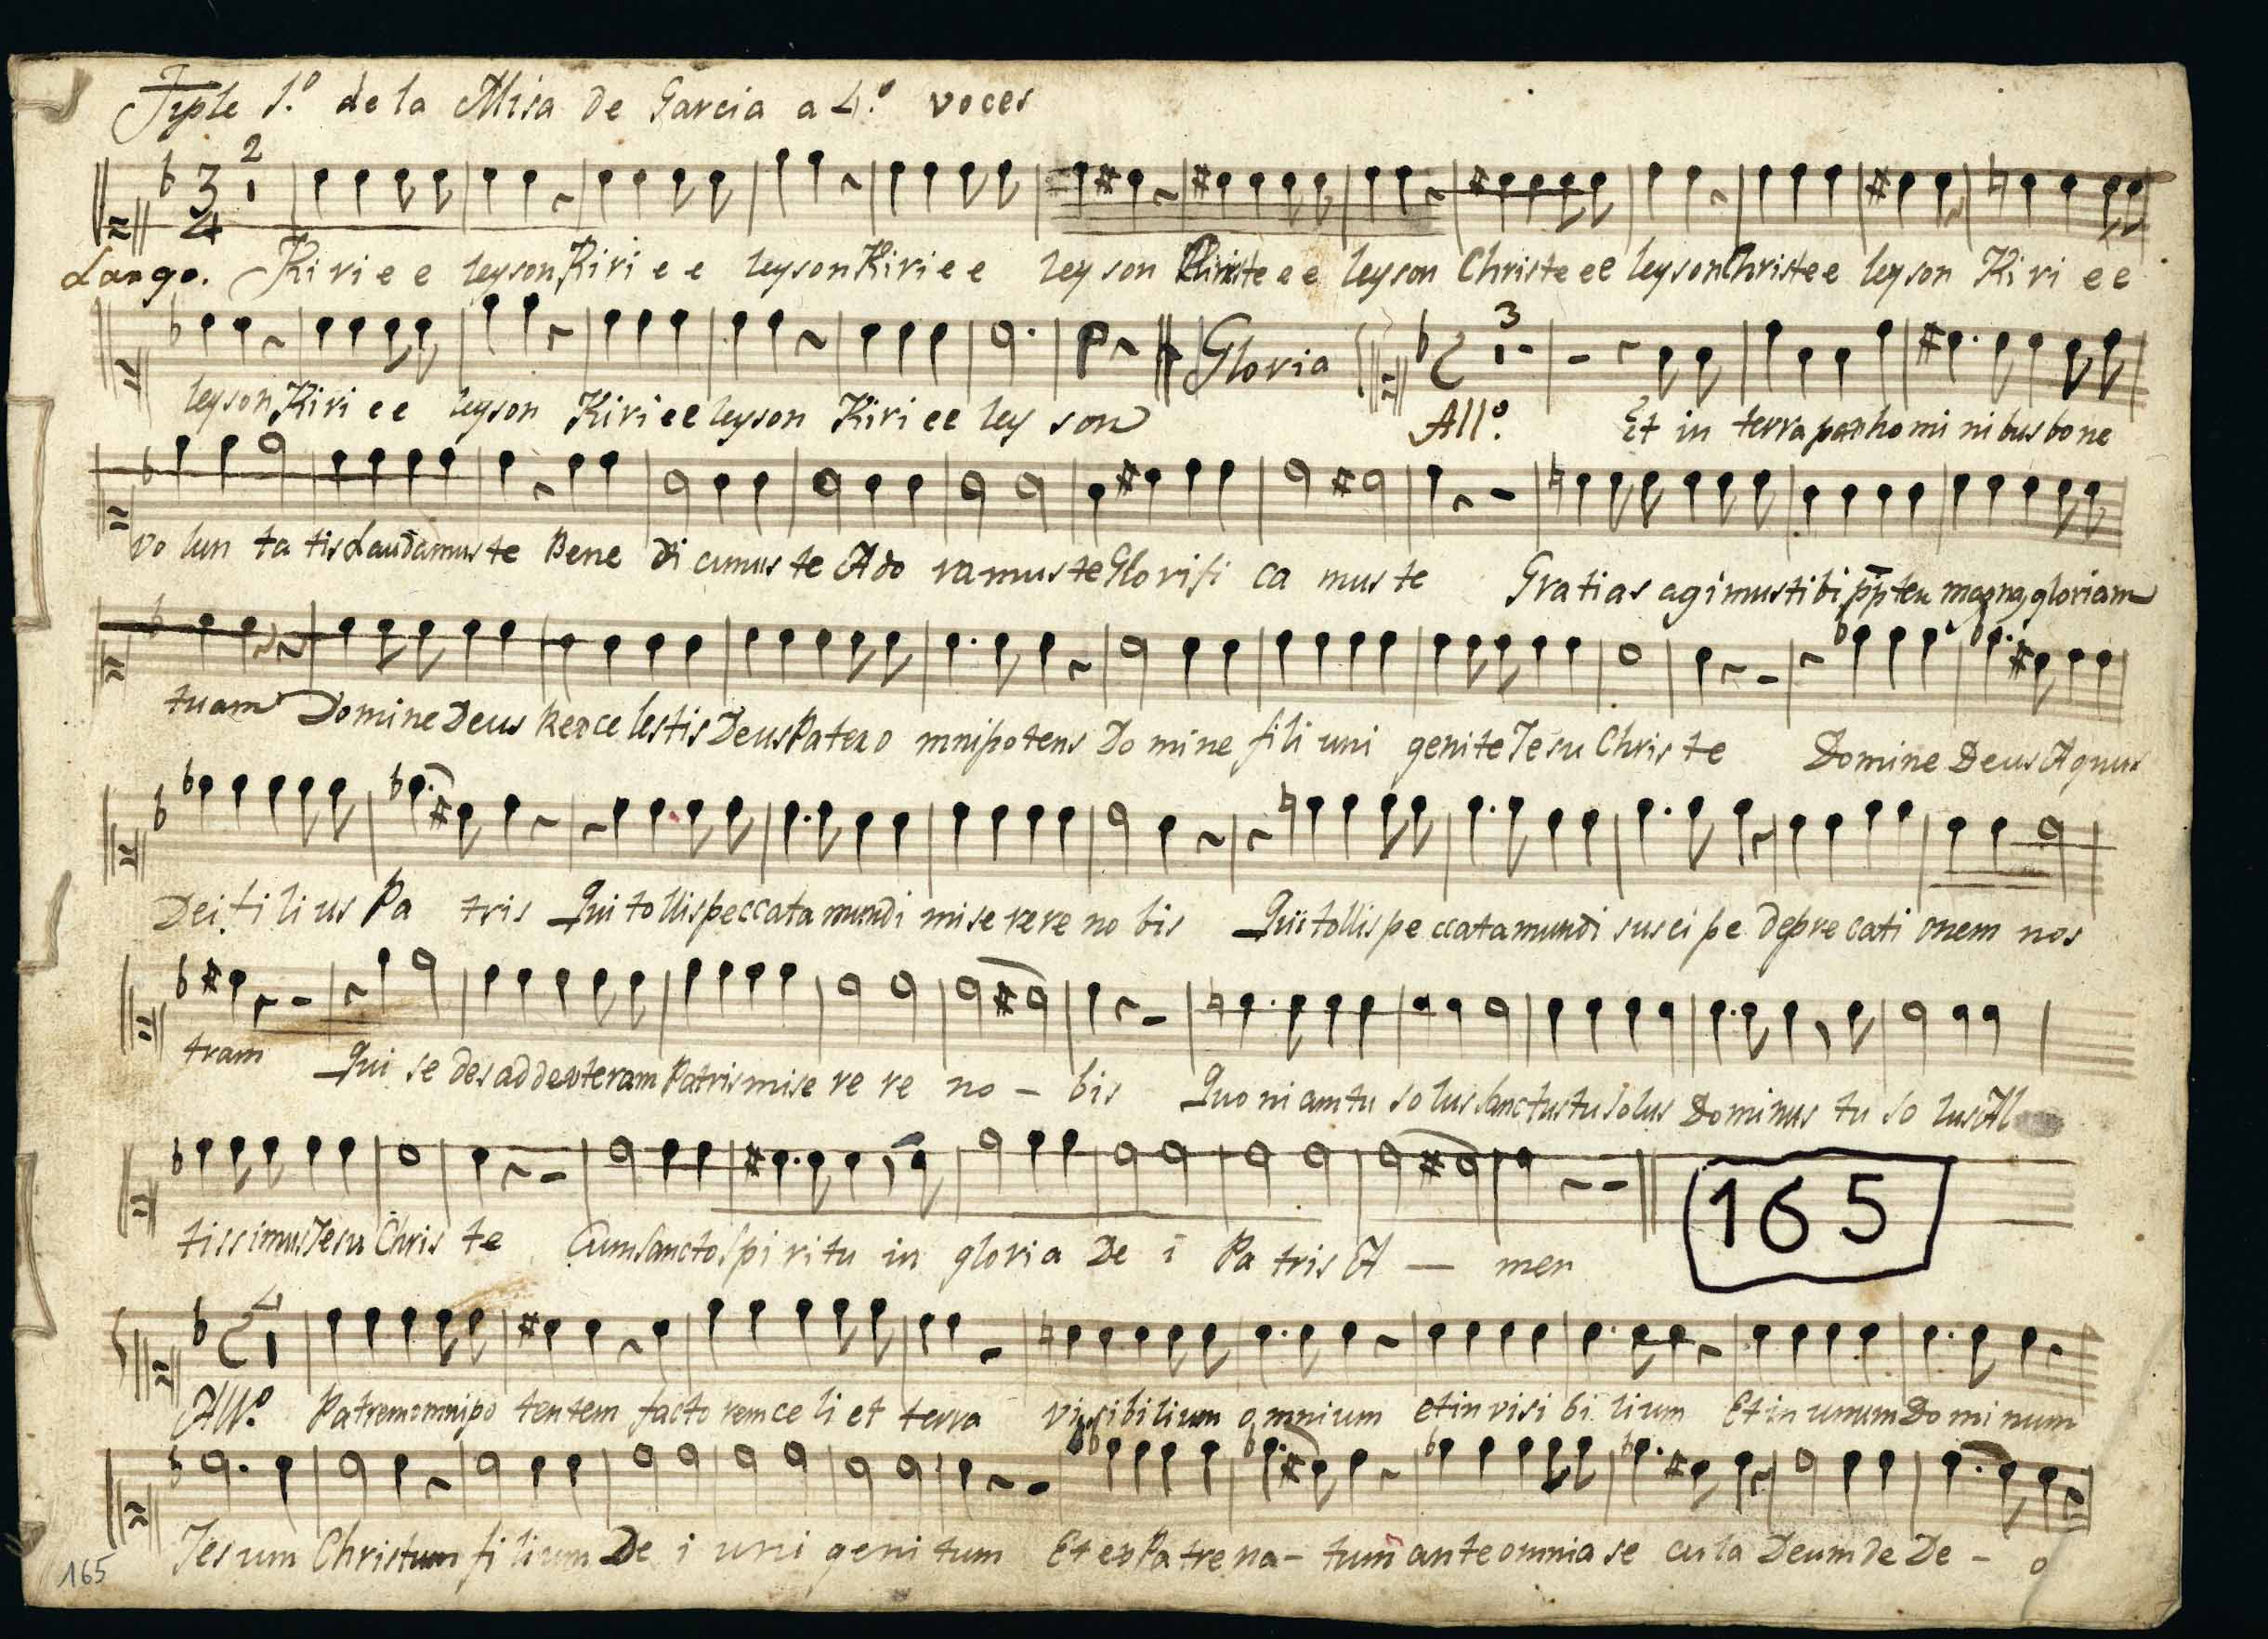 Tiple 1.º de la Misa de Garcia a 4.º voces
3/4 2
Largo. Kiri e e leyson Kiri e e leyson Kiri e e ley son Christe e e leyson Christe ee leyson Christe e leyson Kiri ee
Gloria 3
leyson Kiri ee leyson Kiri ee leyson Kiri ee ley son All.º Et in terra pax homi nibus bone
vo lun ta tis Laudamus te Bene di cimus te Ado ramus te Glorifi ca mus te Gratias agimus tibi pp̄ter magnā gloriam
tuam Domine Deus Rex ce lestis Deus Pater o mnipotens Do mine fili uni genite Jesu Chris te Domine Deus Agnus
Dei fi li us Pa tris Qui tollis peccata mundi mise rere no bis Qui tollis pe ccata mundi susci pe depre cati onem nos
tram Qui se des ad dexteram Patris mise re re no - bis Quo ni am tu so lus sanctus tu solus Dominus tu so lus Al
tissimus Jesu Chris te Cum Sancto Spi ritu in gloria De i Pa tris A — men
165
4
All.º Patrem omnipo tentem facto rem ce li et terra visibilium omnium et in visi bi lium Et in unum Domi num
Jesum Christum fi lium De i uni geni tum Et ex Patre na - tum ante omnia se cula Deum de De - o
165